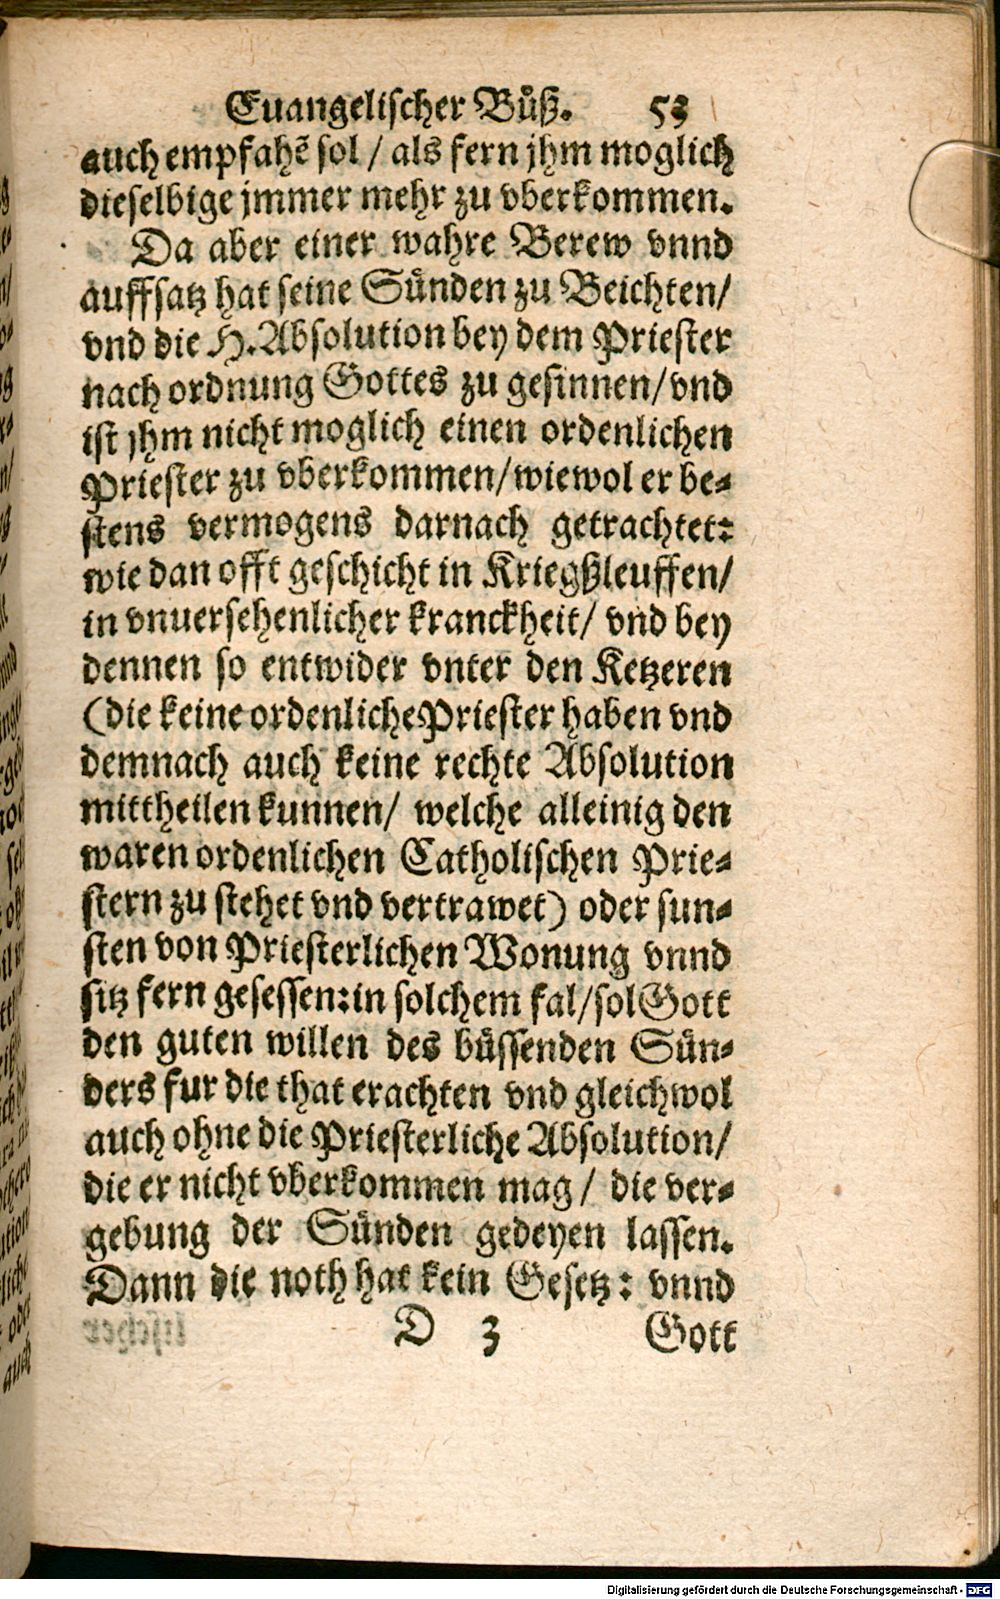 Euangelischer Bůß. 53
auch empfahẽ sol / als fern jhm moglich
dieselbige jmmer mehr zu vberkommen.
Da aber einer wahre Berew vnnd
auffsatz hat seine Sünden zu Beichten/
vnd die H. Absolution bey dem Priester
nach ordnung Gottes zu gesinnen/vnd
ist jhm nicht moglich einen ordenlichen
Priester zu vberkommen/wiewol er be-
stens vermogens darnach getrachtet:
wie dan offt geschicht in Kriegßleuffen/
in vnuersehenlicher kranckheit/ vnd bey
dennen so entwider vnter den Ketzeren
(die keine ordenliche Priester haben vnd
demnach auch keine rechte Absolution
mittheilen kunnen/ welche alleinig den
waren ordenlichen Catholischen Prie-
stern zu stehet vnd vertrawet) oder sun-
sten von Priesterlichen Wonung vnnd
sitz fern gesessen:in solchem fal/sol Gott
den guten willen des büssenden Sün-
ders fur die that erachten vnd gleichwol
auch ohne die Priesterliche Absolution/
die er nicht vberkommen mag/ die ver-
gebung der Sünden gedeyen lassen.
Dann die noth hat kein Gesetz: vnnd
D 3 Gott
Digitalisierung gefördert durch die Deutsche Forschungsgemeinschaft - DFG